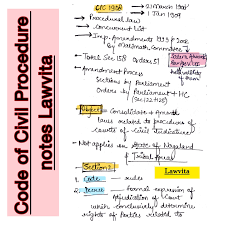 Code of Civil Procedure
notes Lawvita
CPC-1908
21 March 1908
1 Jan 1909
Procedural law
Concurrent list
Imp. Amendments 1999 & 2002
by Malimath Committee
Total Sec 158 Orders 51
Amendment Process
Sections by Parliament
Orders by Parliament + HC
(Sec 122 + 125)
Object = Consolidate + Amend
laws related to procedure of
courts of civil Judicature
Not applies on State of Nagaland
& Tribal Areas
Section 2
Lawvita
1. Code — rules
2. Decree — formal expression of
Adjudication of Court
which conclusively determine
rights of Parties related to